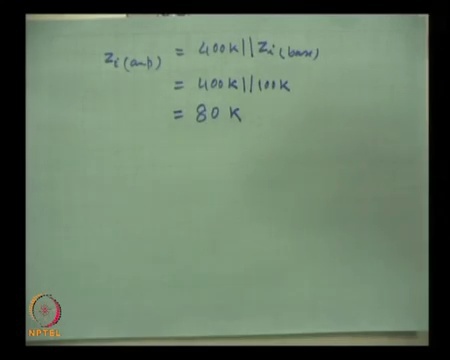 Zi(amp) = 400K || Zi(base)
= 400K || 100K
= 80 K
NPTEL